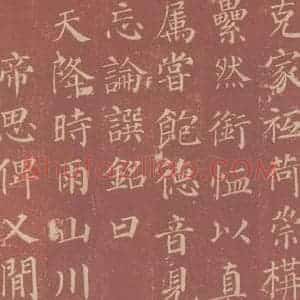 克家祗荷崇構
纍然銜恤以直
属嘗飽德音見
忘論譔銘曰
天降時雨山川
帝思俾乂間